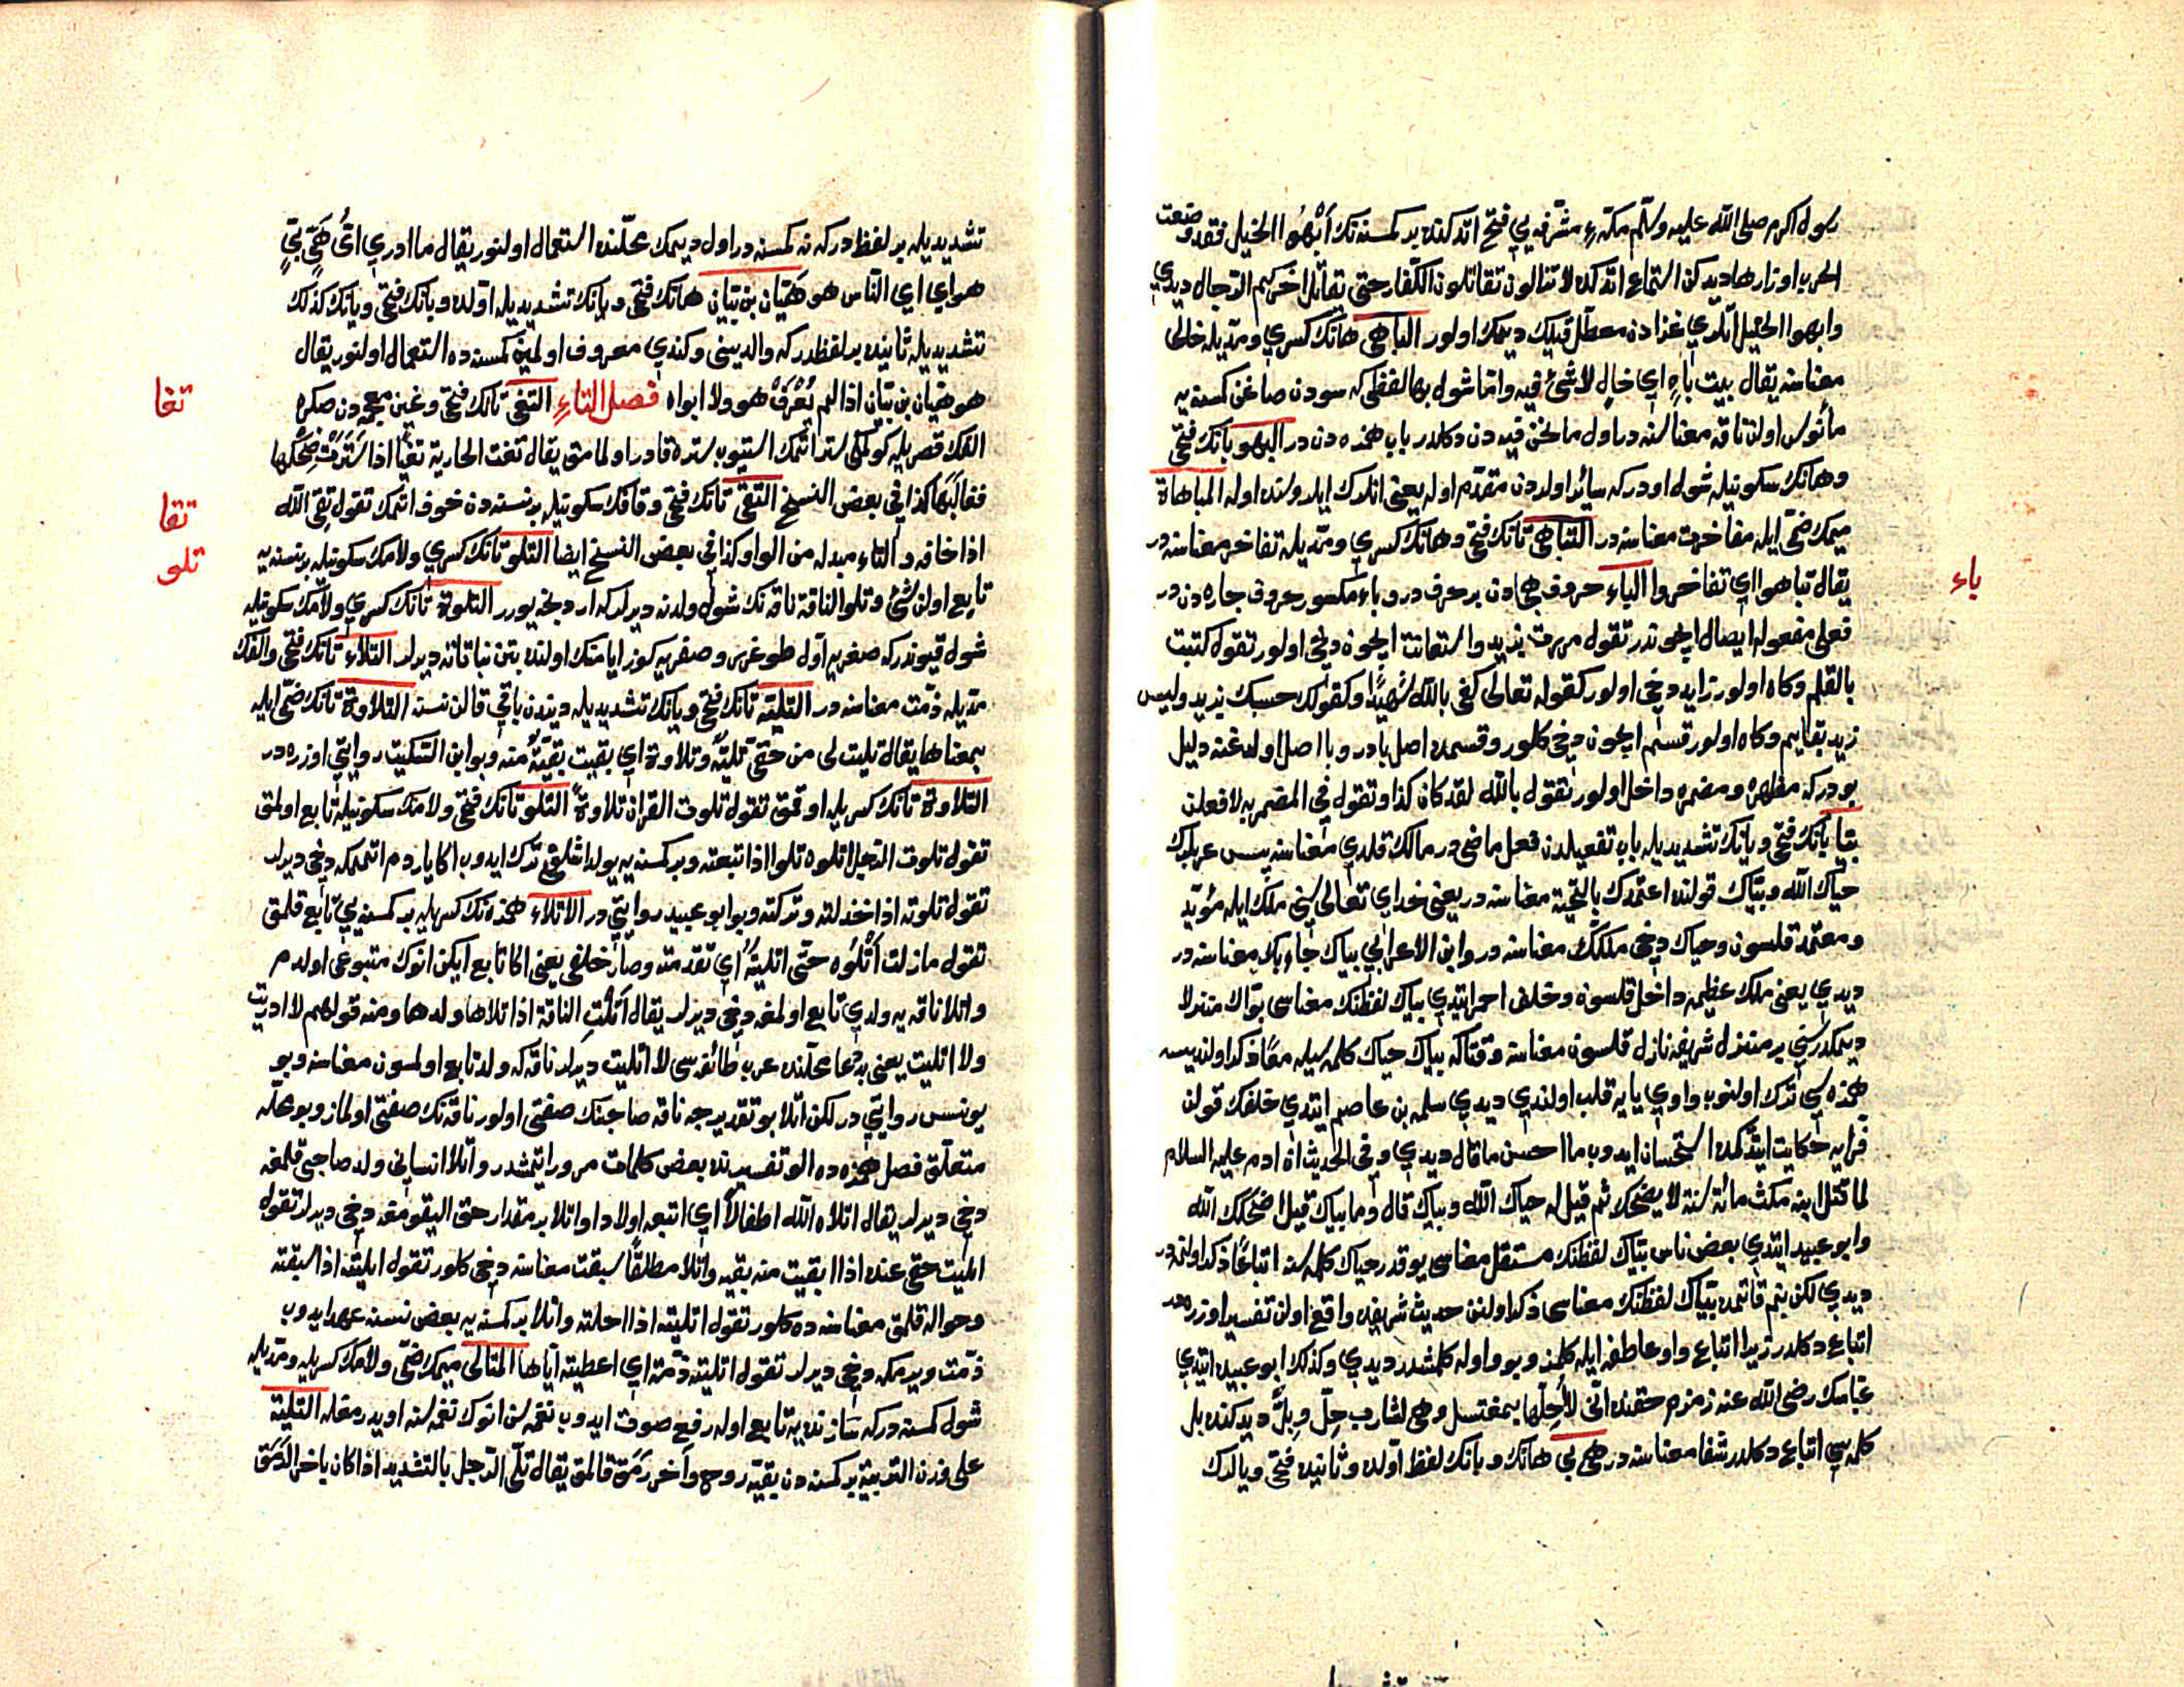 رسول اكرم صلى الله عليه وسلم مكهء مشرفه يي فتح اتدكنده بر كمسنه نك أبْهُوا الخيل فقد وضعت
الحرب اوزارها ديدكن استماع اتدكده لا تزالون تقاتلون الكفار حتى يقاتل اخركم الدجال ديدي
وابهوا الخيل اتلري غزادن معطل قيلك ديمك اولور الباهى هانك كسري ومديله خالى
معناسنه يقال بيت باهٍ اي خالٍ لا شئ فيه وانا شول بهالفظى كه سودن صاغن كمسنه يه
مأنوس اولن ناقه معناسنه در اول ما نحن فيه دن دكلدر باب همزه دن در البهو بانك فتحى
وهانك سكونيله شول اودر كه سائر اولردن مقدّم اوله يعنى انلرك ايلروسنده اوله المباهاة
ميمك ضمى ايله مفاخرت معناسنه در التباهى تانك فتحى وهانك كسري ومديله تفاخر معناسنه در
يقال تباهوا اي تفاخروا الباء حروف هجادن بر حرفدر وباء مكسور حروف جاره دن در
باء
فعلى مفعوله ايصال ايچوندر تقول مررت بزيد واستعانت ايچون دخى اولور تقول كتبت
بالقلم وكاه اولور زايد دخى اولور كقوله تعالى كفى بالله شهيدًا وكقولك حسبك بزيد وليس
زيد بقايم وكاه اولور قسم ايچون دخى كلور وقسمده اصل بادر وبا اصل اولدوغنه دليل
بودر كه مظهره ومضمره داخل اولور تقول بالله لقد كان كذا وتقول في المضمر به لافعلن
بيّا بانك فتحى ويانك تشديديله باب تفعيلدن فعل ماضى در مالك قلدي معناسنه پس عربلرك
حياك الله وبيّاك قولنده اعتمدك بالتحية معناسنه در يعنى خداي تعالى سنى ملك ايله مؤيد
ومعتمد قلسون وحياك دخى ملكك معناسنه در وابن الاعرابي بياك جاء بك معناسنه در
ديدي يعنى ملك عظيمه داخل قلسون وخلف احمر ايتدي بياك لفظنك معناسى بوّاك منزلا
ديمكدر سنى بر منزل شريفه نازل قلسون معناسنه وقتاكه بياك حياك كلمه سيله معًا ذكر اولنديسه
همزه سى ترك اولنوب واوي يايه قلب اولندي ديدي سلمه بن عاصم ايتدي خلفك قولن
فرايه حكايت ايتدكده استحسان ايدوب ما احسن ما قال ديدي وفي الحديث ان ادم عليه السلام
لما قتل ابنه مكث مائة سنة لا يضحك ثم قيل له حياك الله وبياك قال وما بياك قيل اضحكك الله
وابو عبيد ايتدي بعض ناس بيّاك لفظنك مستقل معناسى يوقدر حياك كلمه سنه اتباعًا ذكر اولنور
ديدي لكن بنم قاتمده بيّاك لفظنك معناسى ذكر اولنن حديث شريفده واقع اولن تفسير اوزره در
اتباع دكلدر زيرا اتباع واو عاطفه ايله كلمز وبو واوله كلمشدر ديدي وكذلك ابو عبيد ايتدي
عباسك رضى الله عنه زمزم حقنده انّى لا أحِلّها بمغتسل وهى لشارب حِلّ وبِلّ ديدكنده بل
كلمه سي اتباع دكلدر شفا معناسنه در هى بي هانك وبانك لفظ اولده وثانيده فتحى ويالرك
تشديديله بر لفظدر كه نه كمسنه در اول ديمك محلنده استعمال اولنور يقال ما ادري اىُّ هَىّ بَيٍّ
هو اي اي الناس هو هَيّان بن بيّان هانك فتحى ويانك تشديديله اولده وبانك فتحى ويانك كذلك
تشديديله ثانيده بر لفظدر كه والديسنى وكندي معروف اولمين كمسنه ده استعمال اولنور يقال
هو هيان بن بيّان اذا لم يُعْرَفْ هو ولا ابواه فصل التاء التغى تانك فتحى وغين معجمه دن صكره
تغا
الفك قصريله كولمكى ستر اتمك استيوب ستره قادر اولمامق يقال تغت الجارية تغيًا اذا سترت ضحكها
فغالبها كذا في بعض النسخ التقى تانك فتحى وقافك سكونيله بر نسنه دن خوف اتمك تقول تقى الله
تقا
اذا خافه والتاء مبدله من الواو كذا في بعض النسخ ايضا التلو تانك كسري ولامك سكونيله بر نسنه يه
تلو
تابع اولن شئ وتلو الناقة ناقه نك شول ولدنه ديرلر كه اردنجه يورر التلوة تانك كسري ولامك سكونيله
شول قيوندر كه صفريه اول طوغرس وصفريه كوز ايامنك اولنده بتن نباتاته ديرلر التلاء تانك فتحى والفك
مديله ذمت معناسنه در التليّة تانك فتحى ويانك تشديديله ديندن باقى قالن نسنه التلاوة تانك ضمى ايله
بمعناها يقال تليت لى من حقى تليّة وتلاوة اي بقيت بقيّة منه وبو ابن السكيت روايتى اوزره در
التلاوة تانك كسريله اوقمق تقول تلوت القران تلاوةً التلو تانك فتحى ولامك سكونيله تابع اولمق
تقول تلوت الرجل اتلوه تلوا اذا تبعته وبر كمسنه يه يولداشلغى ترك ايدوب اكا ياردم اتمكه دخى ديرلر
تقول تلوته اذا خذلته وتركته وبو ابو عبيد روايتى در الاتلاء همزه نك كسريله بر كمسنه يي تابع قلمق
تقول مازلت أتْلُوه حتّى اتليته اي تقدمته وصار خلفى يعنى اكا تابع ايكن انوك متبوعى اولدم
واتلا ناقه يه ولدي تابع اولمغه دخى ديرلر يقال أتلَتِ الناقة اذا تلاها ولدها ومنه قولهم لا ادريت
ولا اتليت يعنى بددعا محلنده عرب طائفه سى لا اتليت ديرلر ناقه كه ولد تابع اولمسون معناسنه وبو
يونس روايتى در لكن اتلا بو تقديرجه ناقه صاحبنك صفتى اولور ناقه نك صفتى اولماز وبو محله
متعلق فصل همزه ده الو تفسيرنده بعض كلمات مرور ايتمشدر واتلا انسانى ولد صاحبى قلمغه
دخى ديرلر يقال اتلاه الله اطفالاً اي اتبعه اولادا واتلا بر مقدار حقى اليقومغه دخى ديرلر تقول
اتليت حقى عنده اذا ابقيت منه بقيه واتلا مطلقًا سبقت معناسنه دخى كلور تقول اتليته اذا سبقته
وحواله قلمق معناسنه ده كلور تقول اتليته اذا احلته واتلا بر كمسنه يه بعض نسنه عهد ايدوب
ذمت ويرمكه دخى ديرلر تقول اتليته ذمّة اي اعطيته اياها المتالى ميمك ضمى ولامك كسريله ومديله
شول كمسنه در كه سازنده يه تابع اوله رفع صوت ايدوب نغمه سن انوك نغمه سنه اويدرمقله التلية
على وزن التربية بر كمسنه دن بقيّه روح واَخر رَمَق قالمق يقال تلّى الرّجل بالتشديد اذا كان باخر الرَمَق